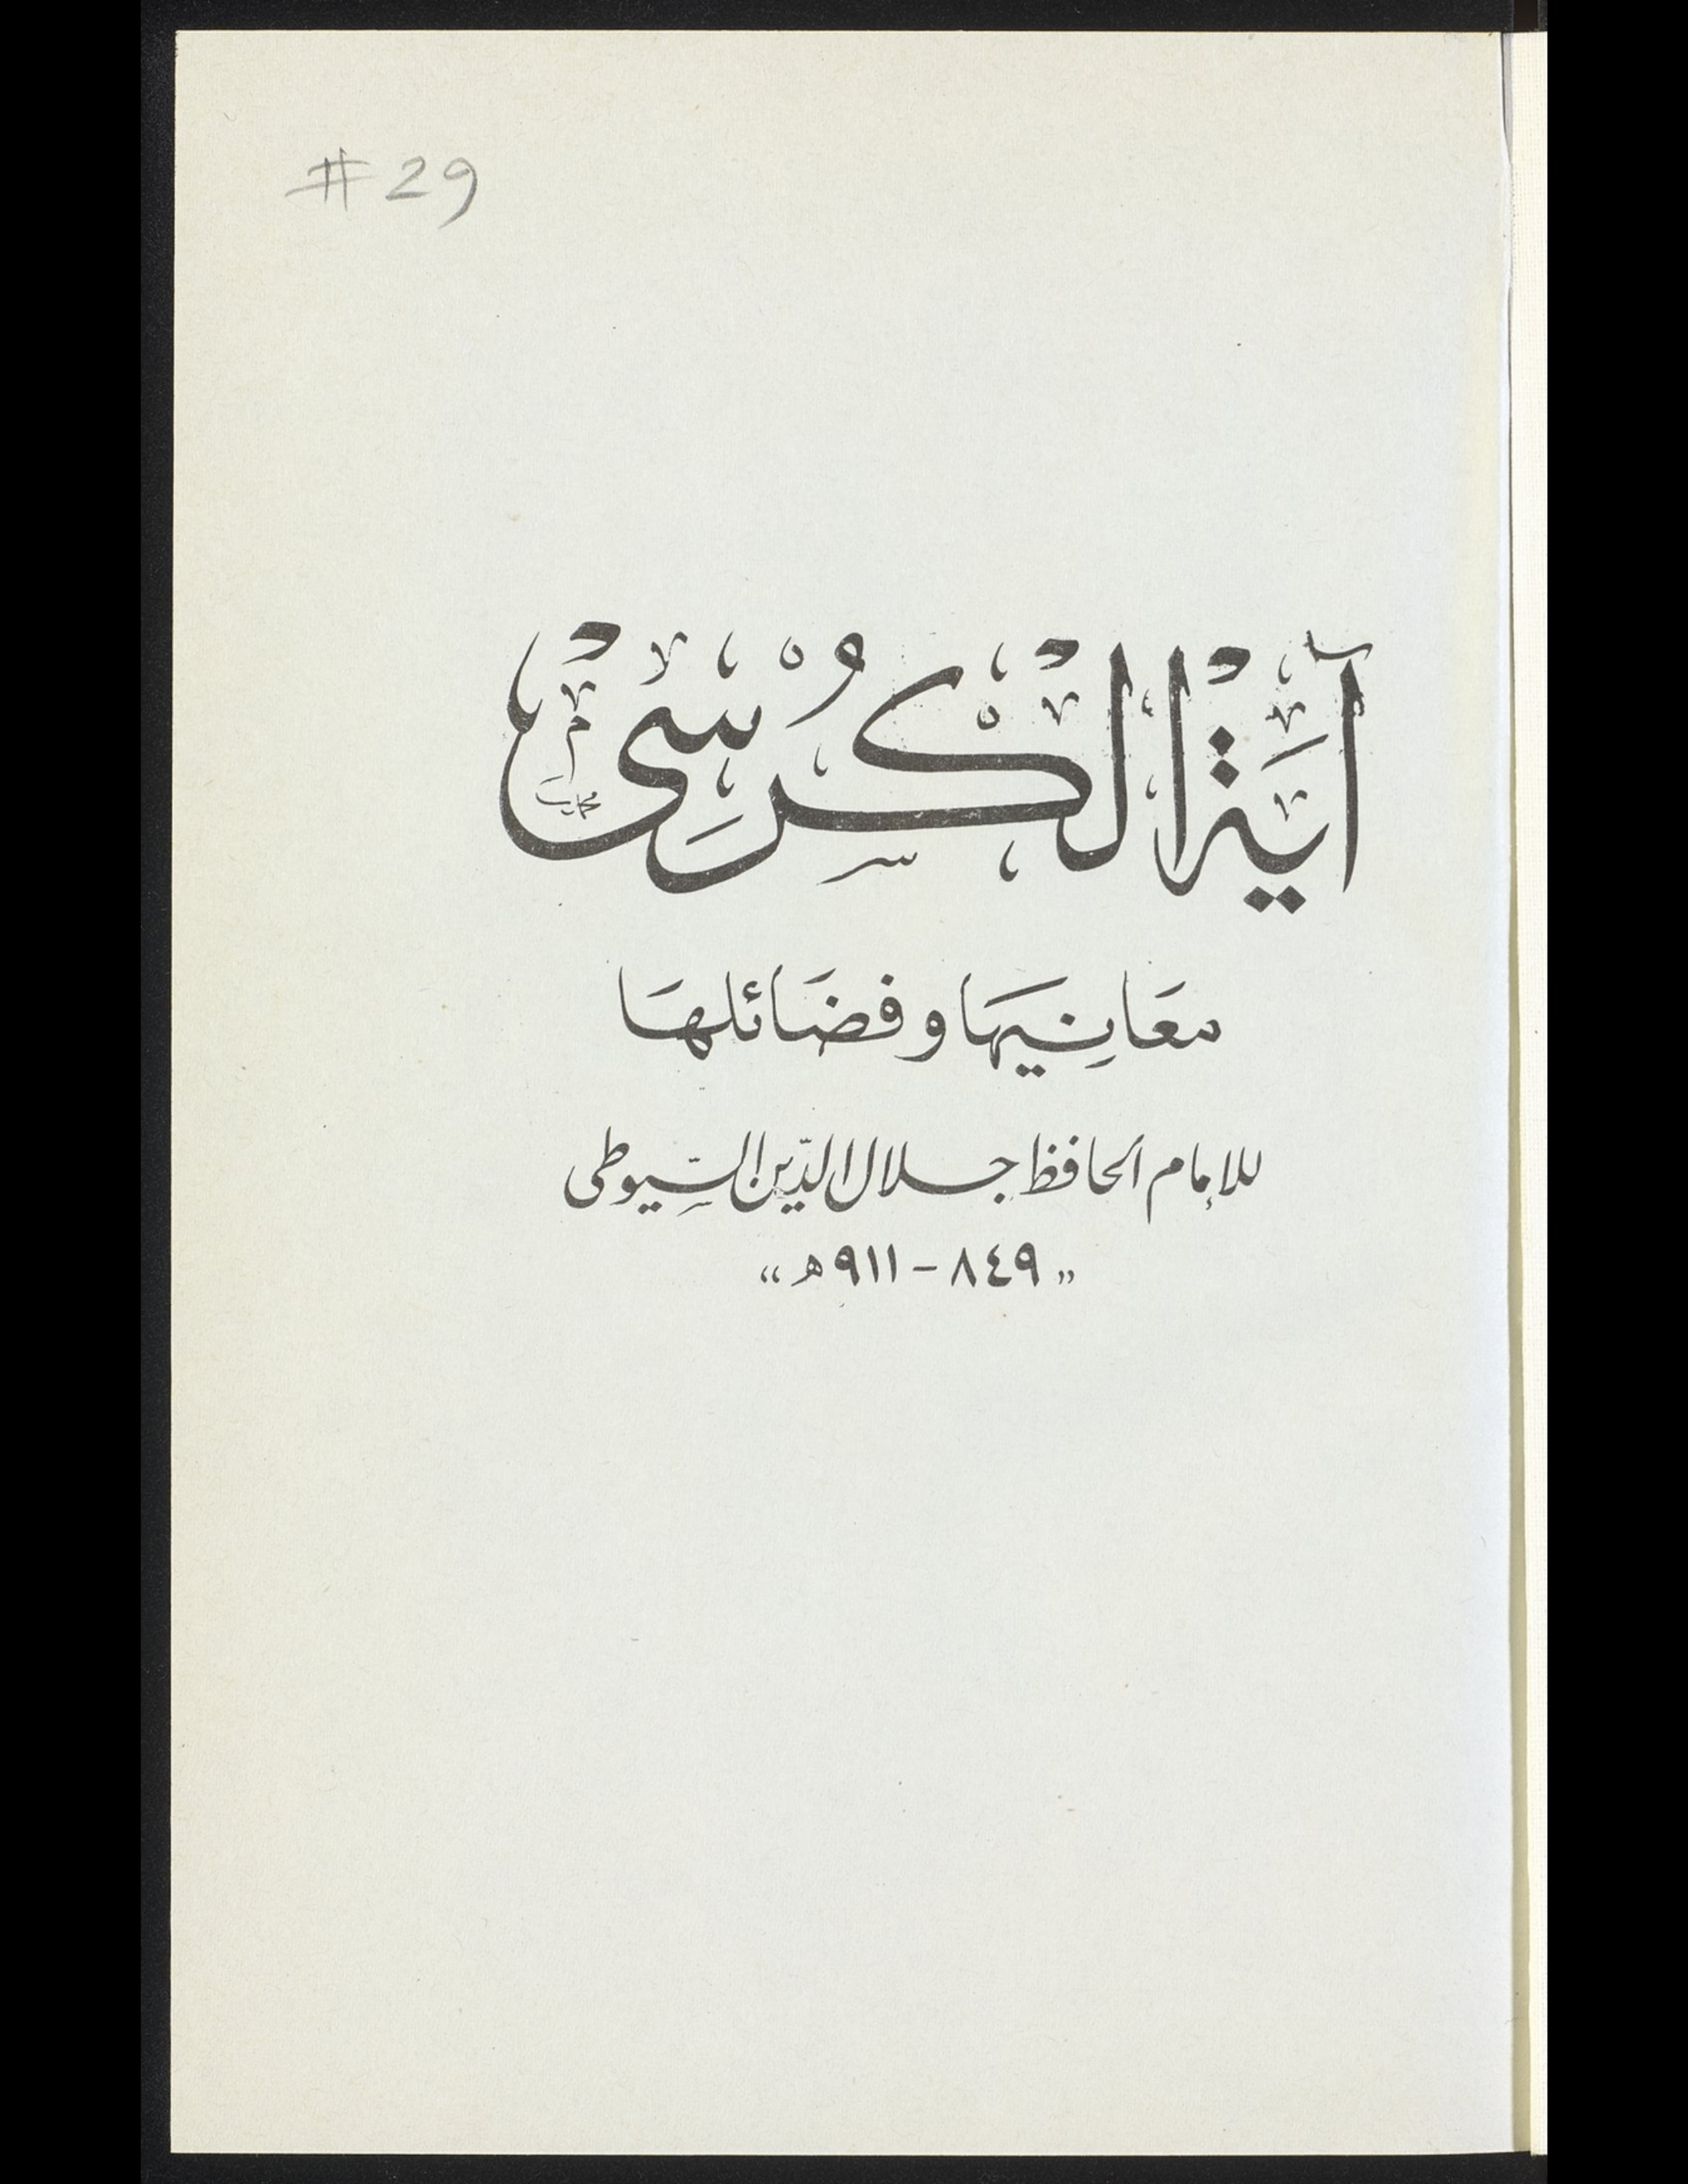 #29
آية الكرسي
معَانِيهَا وفضَائلهَا
للإمام الحافظ جلال الدّين السّيوطى
"٨٤٩ - ٩١١ ه"